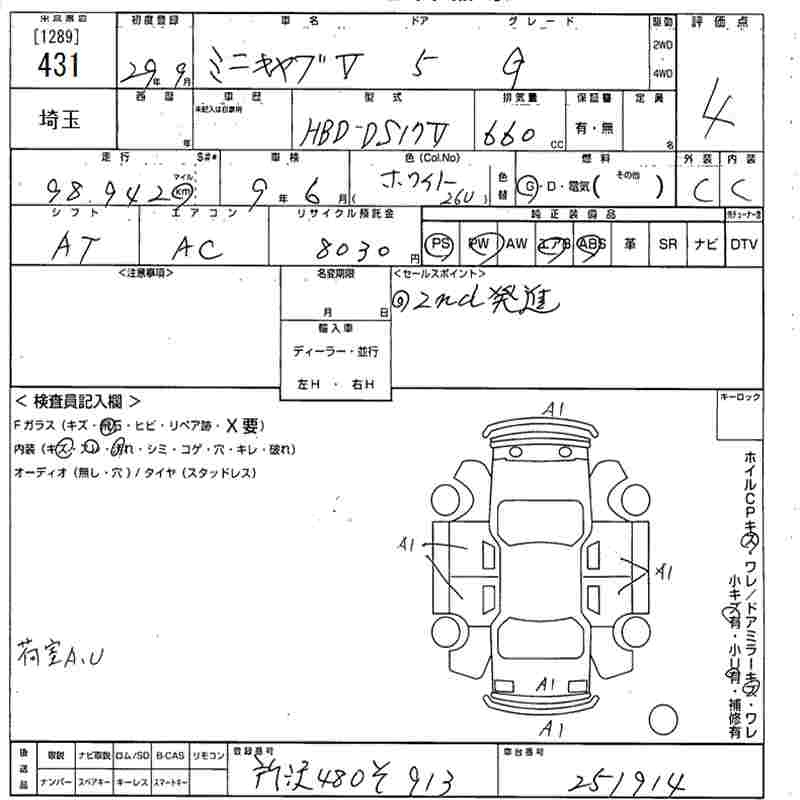 初度登録 車名 ドア グレード 駆動 評価点
[1289]
431
29年9月 ミニキャブV 5 G 2WD 4WD 4
埼玉
西暦 車歴 型式 排気量 保証書 定員
未記入は自家用
年 HBD-DS17V 660 CC 有・無 名
走行 S#* 車検 色(Col.No) 色替 燃料 外装 内装
98.942 マイル km 9年6月 ( ホワイト 26U ) G・D・電気( その他 ) C C
シフト エアコン リサイクル預託金 純正装備品
AT AC 8030円 PS PW AW エアB ABS 革 SR ナビ DTV
<注意事項> 名変期限 <セールスポイント>
月 日 ◎2nd発進
輸入車
ディーラー・並行
左H ・ 右H
< 検査員記入欄 > キーロック
Fガラス (キズ・飛石・ヒビ・リペア跡・X要)
内装 (キズ・スレ・汚れ・シミ・コゲ・穴・キレ・破れ)
オーディオ (無し・穴) / タイヤ (スタッドレス)
A1
A1
A1
A1
A1
ホイルCPキズ・ワレ/ドアミラーキズ・ワレ
小キズ有・小U有・補修有
荷室A.U
後送品 取説 ナビ取説 ロム/SD B-CAS リモコン 登録番号 車台番号
ナンバー スペアキー キーレス スマートキー 所沢480そ913 251914